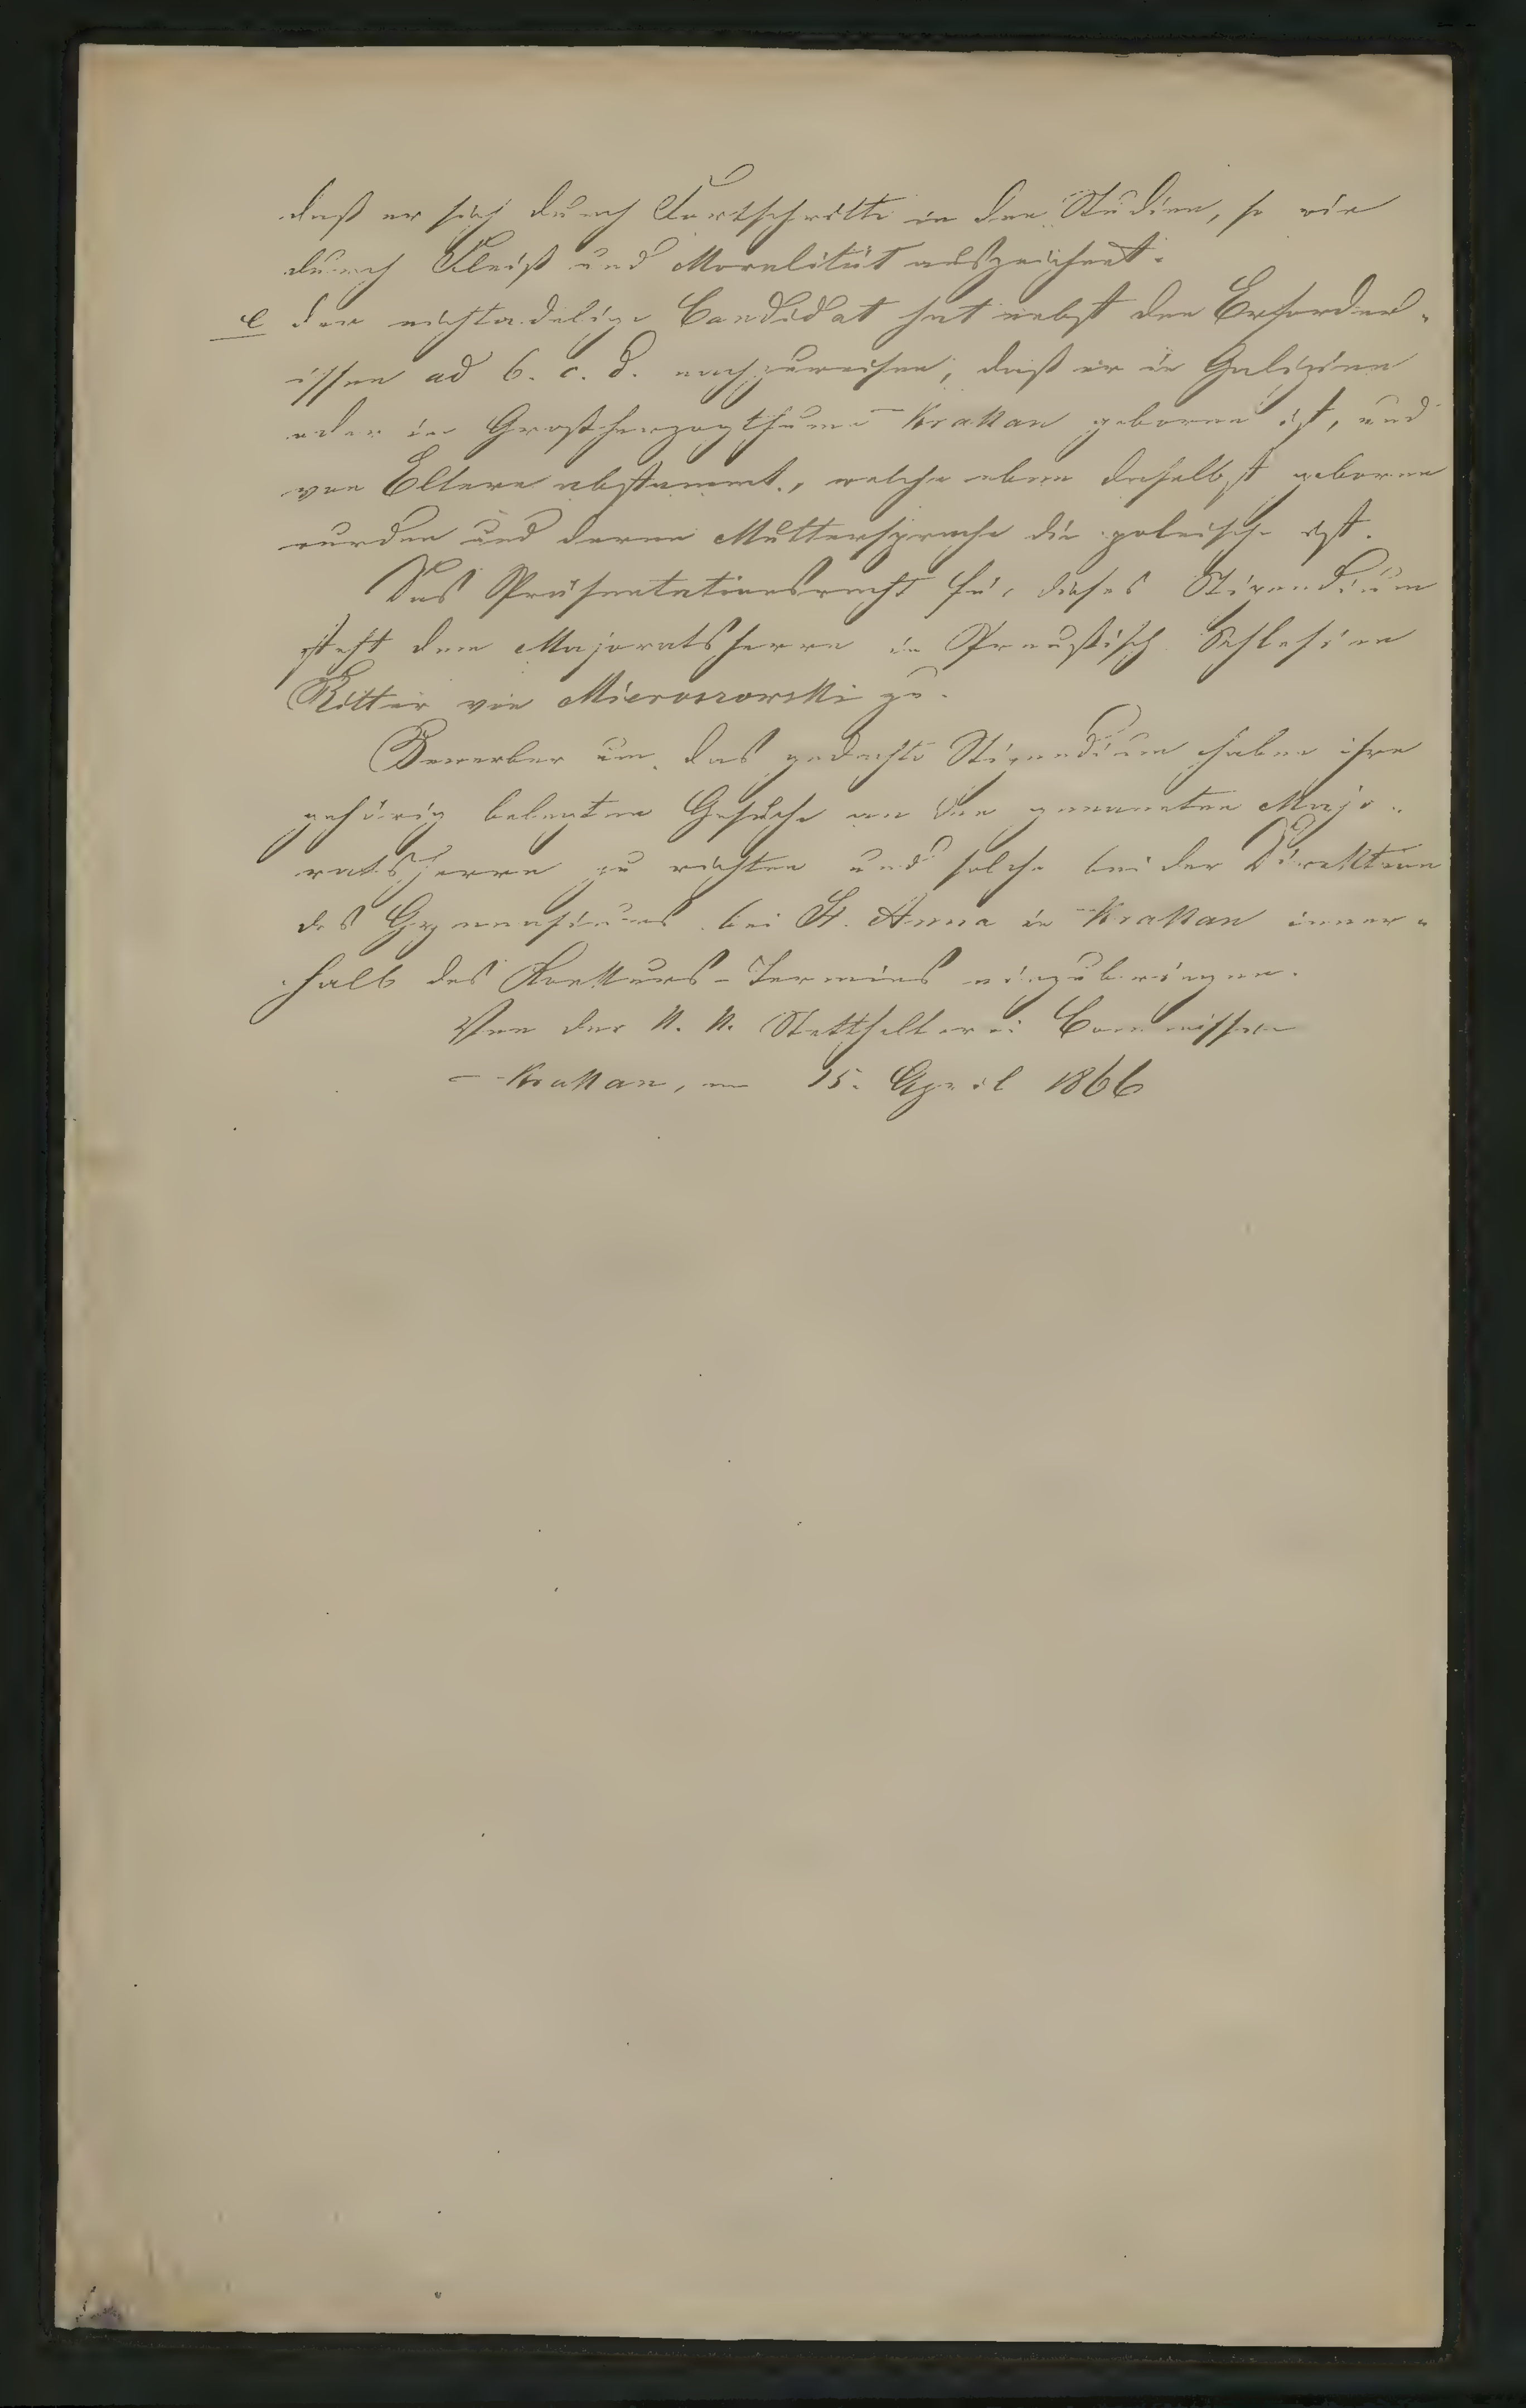 daß er sich durch Fortschritte in den Studien, so wie
durch Fleiß und Moralität auszeichnet.
e der nichtadelige Candidat hat nebst den Erforder-
issen ad b. c. d. nachzuweisen, daß er in Galizien
oder im Großherzogthume Krakau geboren ist, und
von Eltern abstammt, welche eben daselbst geboren
wurden und deren Muttersprache die polnische ist.
Das Präsentationsrecht für dieses Stipendium
steht dem Majoratsherrn in Preußisch Schlesien
Ritter von Mieroszowski zu.
Bewerber um das gedachte Stipendium haben ihre
gehörig belegten Gesuche an den genannten Majo-
ratsherrn zu richten und solche bei der Direktion
des Gymnasiums bei St. Anna in Krakau inner-
halb des Konkurs-Termins einzubringen.
Von der k. k. Statthalterei Commission
Krakau, am 15. April 1866